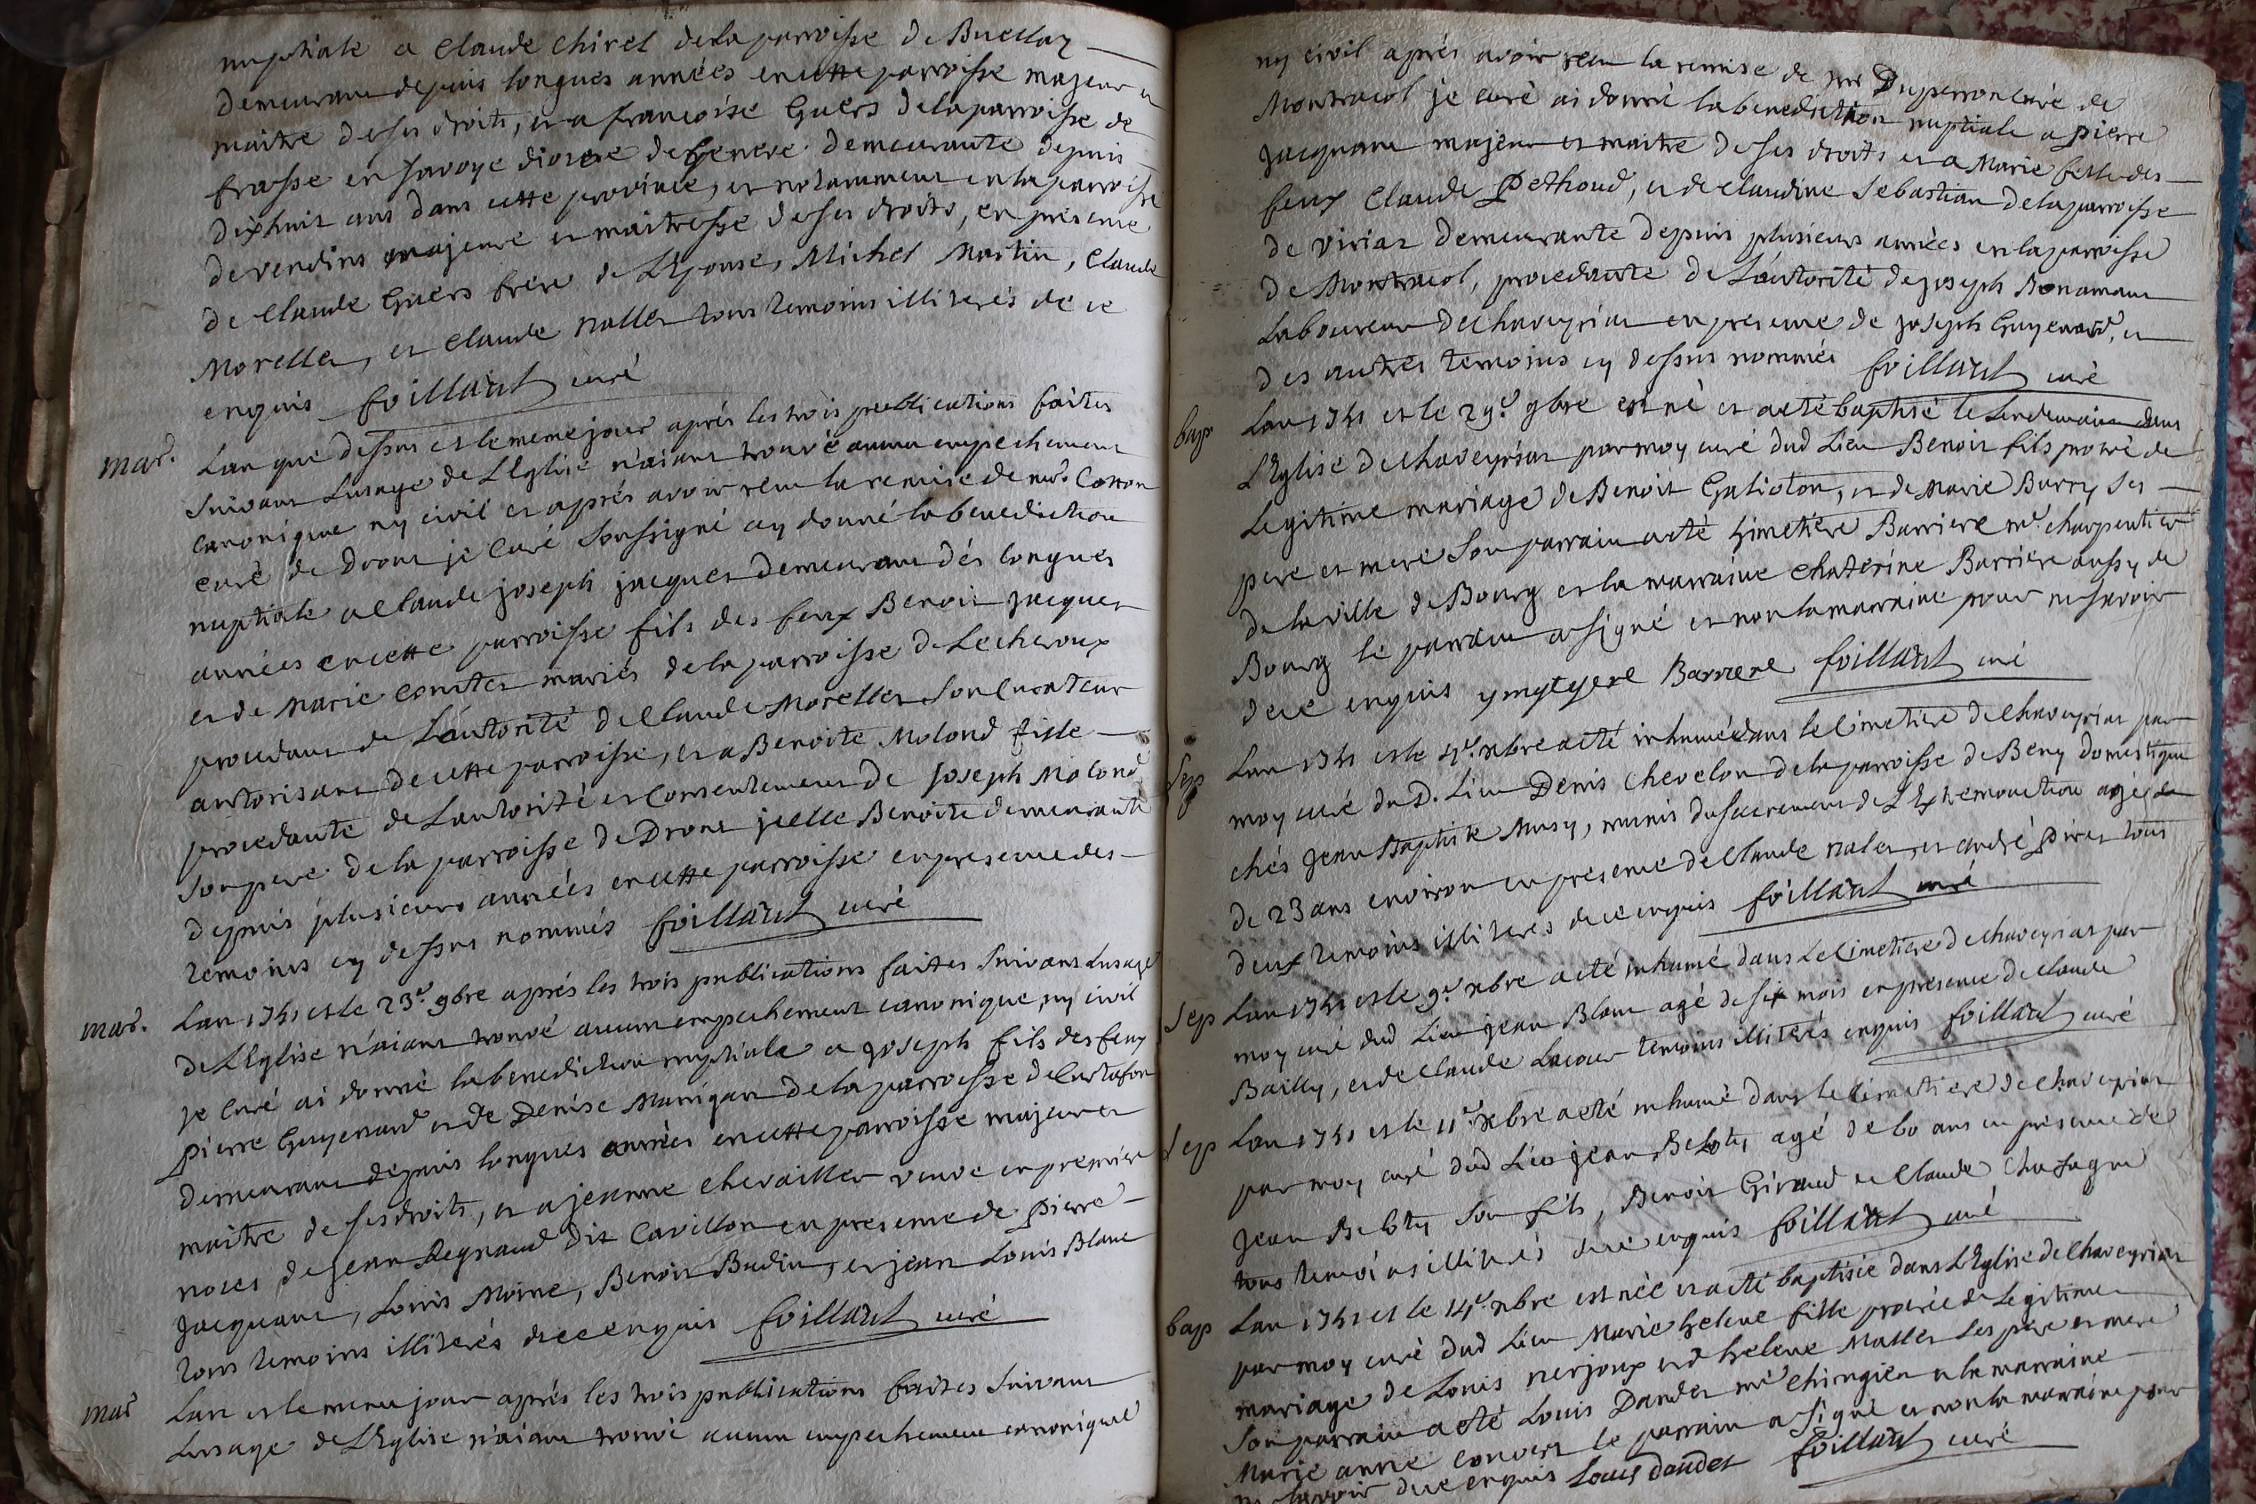 nuptiale a Claude Chirel de la parroisse de Buellaz
demeurant depuis longues années en cette parroisse majeur et
maitre de ses droits, et a françoise Guers de la parroisse de
frasse en Savoye diocese de Geneve demeurante depuis
dixhuit ans dans cette province, et notamment en la parroisse
de vendins majeure et maitresse de ses droits, en presence
de Claude Guers frere de L'Epouse, Michel Martin, Claude
Morellet, et Claude nallet tous temoins illiterés de ce
enquis foillard curé
mar. Lan que dessus et le meme jour aprés les trois publications faites
suivant Lusage de L'Eglise n'aiant trouvé aucun empechement
canonique ny civil et aprés avoir receu la remise de mr. Cotton
curé de Drom je Curé soussigné ay donné la benediction
nuptiale a Claude joseph jacquet demeurant dés longues
années en cette parroisse fils des feux Benoit jacquet
et de Marie comtet mariés de la parroisse de Lecheroux
procedant de L'autorité de Claude Morellet Son Curateur
autorisant de cette parroisse, et a Benoite Molond fille
procedante de Lautorité et Consentement de joseph Molond
Son pere de la parroisse de Drom jcelle Benoite demeurante
depuis plusieurs années en cette parroisse en presence des
temoins cy dessus nommés foillard curé
mar. Lan 1741 et le 23e. 9bre aprés les trois publications faites suivant Lusage
de L'Eglise n'aiant trouvé aucun empechement canonique, ny civil
je Curé ai donné la benediction nuptiale a joseph fils des feux
pierre Guyenard et de Denise Manigan de la parroisse de Curtafon
demeurant depuis longues années en cette parroisse majeur et
maitre de ses droits, et a jeanne chevaillet veuve en premiere
noces de jean Regnaud dit Cavillon en presence de pierre
Jacquant, Louis Moine, Benoit Budin, et jean Louis Blanc
tous temoins illiterés de ce enquis foillard curé
mar Lan et le meme jour aprés les trois publications faites suivant
Lusage de L'Eglise n'aiant trouvé aucun empechement canonique
ny civil aprés avoir receu la remise de mr Duperron curé de
Montracol je curé ai donné la benediction nuptiale a pierre
jacquant majeur et maitre de ses droits et a Marie fille des
feux Claude Pethoud, et de claudine Sebastian de la parroisse
de viriat demeurante depuis plusieurs années en la parroisse
de Montracol, procedante de L'autorité de joseph Bonamour
Laboureur de Chaveyriat en presence de joseph Guyenard, et
des autres temoins cy dessus nommés foillard curé
bap Lan 1741 et le 29e. 9bre est né et a eté baptisé le Lendemain dans
L'Eglise de chaveyriat par moy curé dud Lieu Benoit fils procreé de
Legitime mariage de Benoit Galioton, et de Marie Burry ses
pere et mere Son parrain a eté himetiere Barriere me. charpentier
de la ville de Bourg et la marraine chaterine Barriere aussy de
Bourg le parrain a signé et non la marraine pour ne savoir
de ce enquis ymytyere Barrere foillard curé
Sep Lan 1741 et le 4e. xbre a eté inhumé dans le Cimetiere de chaveyriat par
moy curé du D. Lieu Denis Chevelon de la parroisse de Beny domestique
chés Jean Baptiste Musy, munis du sacrement de L'Extremonction agé de
de 23 ans environ en presence de Claude nalet, et andré Piret tous
deux temoins illiterés de ce enquis foillard curé
Sep Lan 1741 et le 9e. xbre a eté inhumé dans Le Cimetiere de chaveyriat par
moy curé dud Lieu jean Blanc agé de six mois en presence de Claude
Bailly, et de Claude Lacour temoins illiterés enquis foillard curé
Sep Lan 1741 et le 11e. xbre a eté inhumé dans le Cimetiere de chaveyriat
par moy curé dud Lieu jean Beloty agé de 60 ans en presence de
Jean Beloty Son fils, Benoit Giraud et Claude Chafagne
tous temoins illiterés de ce enquis foillard curé
bap Lan 1741 et le 14e. xbre est née et a eté baptisée dans L'Eglise de Chaveyriat
par moy curé dud Lieu Marie helene fille procreée de Legitime
mariage de Louis nerjoux et d'helene Mallet Les pere et mere
Son parrain a eté Louis Dandet me chirugien et la marraine
Marie anne convert le parrain a signé et non la marraine pour
ne savoir de ce enquis Louis dandet foillard curé